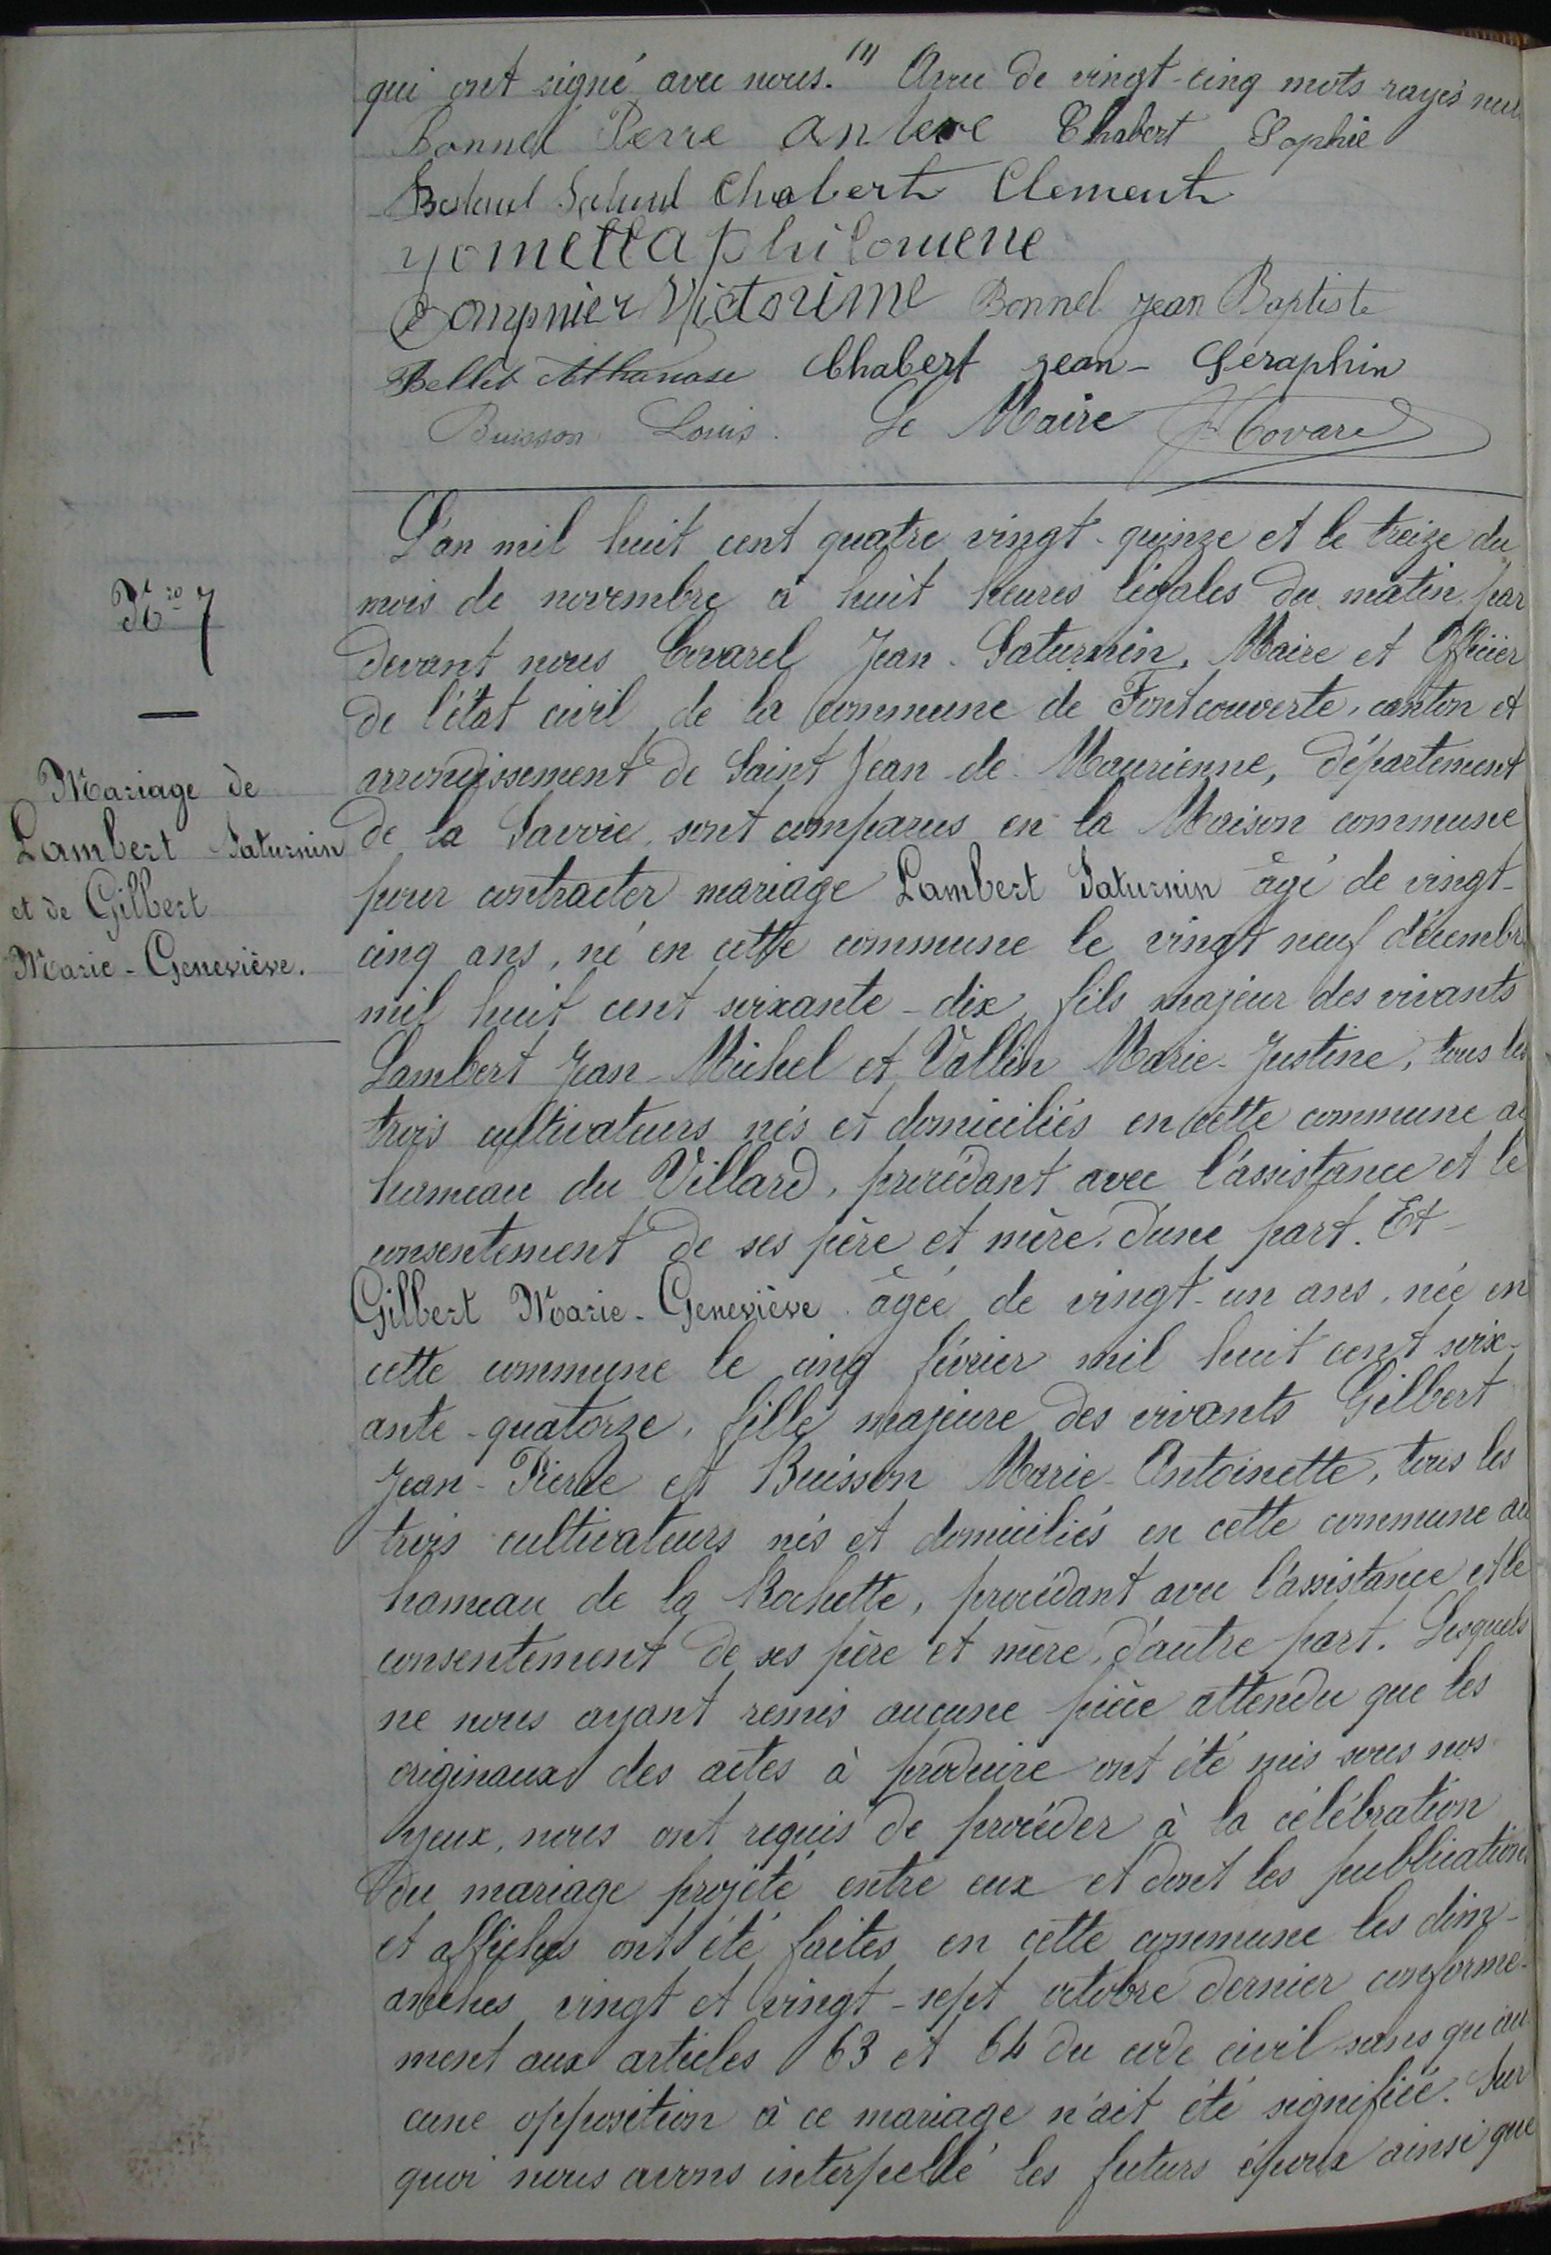 qui ont signé avec nous. (1) de vingt-cinq mots rayés nuls
Bonnel Pierre Chabert Sophie
Chabert Clement
philomene
Victorine Bonnel Jean Baptiste
Bellet Athanase Chabert jean - Seraphin
Buisson Louis. Le Maire JCovarel
L'an mil huit cent quatre vingt-quinze et le treize du
mois de novembre à huit heures légales du matin par
devant nous Covarel Jean-Saturnin, Maire et Officier
de l'état civil de la commune de Fontcouverte, canton et
arrondissement de Saint Jean-de-Maurienne, département
de la Savoie, sont comparus en la Maison commune
pour contracter mariage Lambert Saturnin âgé de vingt-
cinq ans, né en cette commune le vingt neuf décembre
mil huit cent soixante-dix, fils majeur des vivants
Lambert Jean-Michel et Vallin Marie-Justine, tous les
trois cultivateurs nés et domiciliés en cette commune au
hameau du Villard, procédant avec l'assistance et le
consentement de ses père et mère, d'une part. Et-
Gilbert Marie-Geneviève âgée de vingt-un ans, née en
cette commune le cinq février mil huit cent soix-
ante-quatorze, fille majeure des vivants Gilbert
Jean-Pierre et Buisson Marie-Antoinette, tous les
trois cultivateurs nés et domiciliés en cette commune au
hameau de la Rochette, procédant avec l'assistance et le
consentement de ses père et mère, d'autre part. Lesquels
ne nous ayant remis aucune pièce attendu que les
originaux des actes à produire ont été mis sous nos
yeux, nous ont requis de procéder à la célébration
du mariage projeté entre eux et dont les publications
et affiches ont été faites en cette commune les dim-
anches vingt et vingt-sept octobre dernier conformé-
ment aux articles 63 et 64 du code civil sans qu'au-
cune opposition à ce mariage n'ait été signifiée. Sur
quoi nous avons interpellé les futurs époux ainsi que
N.ro 7
Mariage de
Lambert Saturnin
et de Gilbert
Marie-Geneviève.